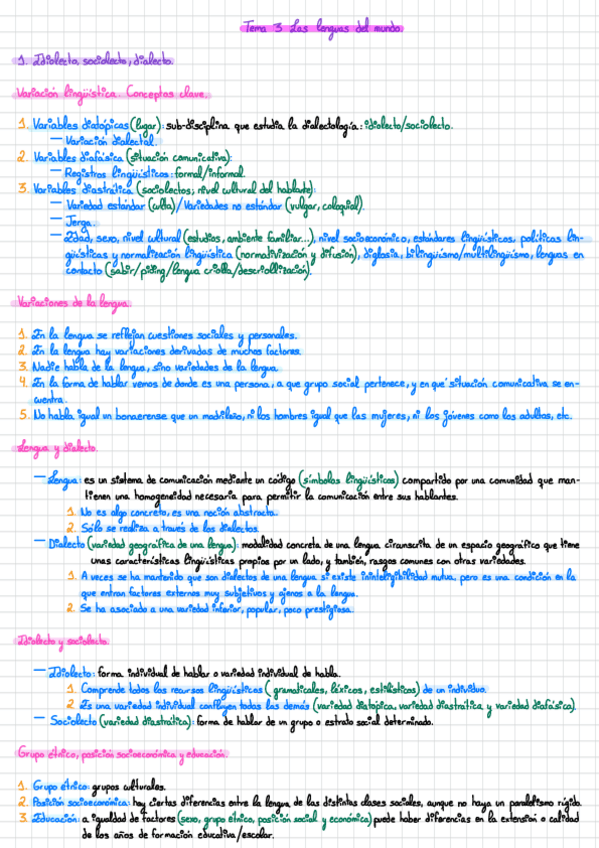 Tema 3 Las lenguas del mundo
1. Idiolecto, sociolecto, dialecto.
Variación lingüística. Conceptos clave.
1. Variables diatópicas (lugar): sub-disciplina que estudia la dialectología: idiolecto/sociolecto.
— Variación dialectal.
2. Variables diafásica (situación comunicativa):
— Registros lingüísticos: formal/informal.
3. Variables diastrática (sociolectos; nivel cultural del hablante):
— Variedad estándar (culta)/Variedades no estándar (vulgar, coloquial).
— Jerga.
— Edad, sexo, nivel cultural (estudios, ambiente familiar...), nivel socioeconómico, estándares lingüísticos, políticas lin-
güísticas y normalización lingüística (normativización y difusión), diglosia, bilingüismo/multilingüismo, lenguas en
contacto (sabir/piding/lengua criolla/descriollización).
Variaciones de la lengua.
1. En la lengua se reflejan cuestiones sociales y personales.
2. En la lengua hay variaciones derivadas de muchos factores.
3. Nadie habla de la lengua, sino variedades de la lengua.
4. En la forma de hablar vemos de donde es una persona, a que grupo social pertenece, y en qué situación comunicativa se en-
cuentra.
5. No habla igual un bonaerense que un madrileño, ni los hombres igual que las mujeres, ni los jóvenes como los adultos, etc.
Lengua y dialecto.
— Lengua: es un sistema de comunicación mediante un código (símbolos lingüísticos) compartido por una comunidad que man-
tienen una homogeneidad necesaria para permitir la comunicación entre sus hablantes.
1. No es algo concreto, es una noción abstracta.
2. Sólo se realiza a través de los dialectos.
— Dialecto (variedad geográfica de una lengua): modalidad concreta de una lengua circunscrita de un espacio geográfico que tiene
unas características lingüísticas propias por un lado, y también, rasgos comunes con otras variedades.
1. A veces se ha mantenido que son dialectos de una lengua si existe ininteligibilidad mutua, pero es una condición en la
que entran factores externos muy subjetivos y ajenos a la lengua.
2. Se ha asociado a una variedad inferior, popular, poco prestigiosa.
Idiolecto y sociolecto.
— Idiolecto: forma individual de hablar o variedad individual de habla.
1. Comprende todos los recursos lingüísticos (gramaticales, léxicos, estilísticos) de un individuo.
2. Es una variedad individual confluyen todas las demás (variedad diatópica, variedad diastrática y variedad diafásica).
— Sociolecto (variedad diastrática): forma de hablar de un grupo o estrato social determinado.
Grupo étnico, posición socioeconómica y educación.
1. Grupo étnico: grupos culturales.
2. Posición socioeconómica: hay ciertas diferencias entre la lengua de las distintas clases sociales, aunque no haya un paralelismo rígido.
3. Educación: a igualdad de factores (sexo, grupo étnico, posición social y económica) puede haber diferencias en la extensión o calidad
de los años de formación educativa/escolar.